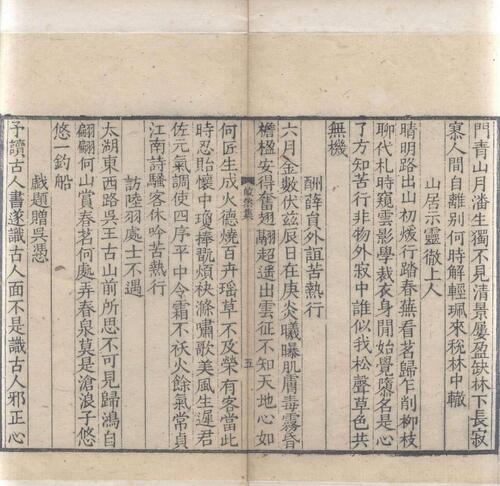 門青山月潘生獨不見清景屢盈缺林下長寂
寥人間自離別何時解輕珮來稅林中轍
山居示靈徹上人
晴明路出山初煖行踏春蕪看茗歸乍削柳枝
聊代札時窺雲影學裁衣身閒始覺隳名是心
了方知苦行非物外寂中誰似我松聲草色共
無機
酬薛員外誼苦熱行
六月金數伏兹辰日在庚炎曦曝肌膚毒霧昏
檐楹安得奮翅翮超遥出雲征不知天地心如
集
五
何匠生成火德燒百卉瑶草不及榮有客當此
時忍飴懷中瓊捧翫煩袂滌嘯歌美風生遲君
佐元氣調使四序平中令霜不袄火餘氣常貞
江南詩騷客休吟苦熱行
訪陸羽處士不遇
太湖東西路吳王古山前所思不可見歸鴻自
翩翩何山賞春茗何處弄春泉莫是滄浪子悠
悠一釣船
戲題贈吳憑
予讀古人書遂識古人面不是識古人邪正心